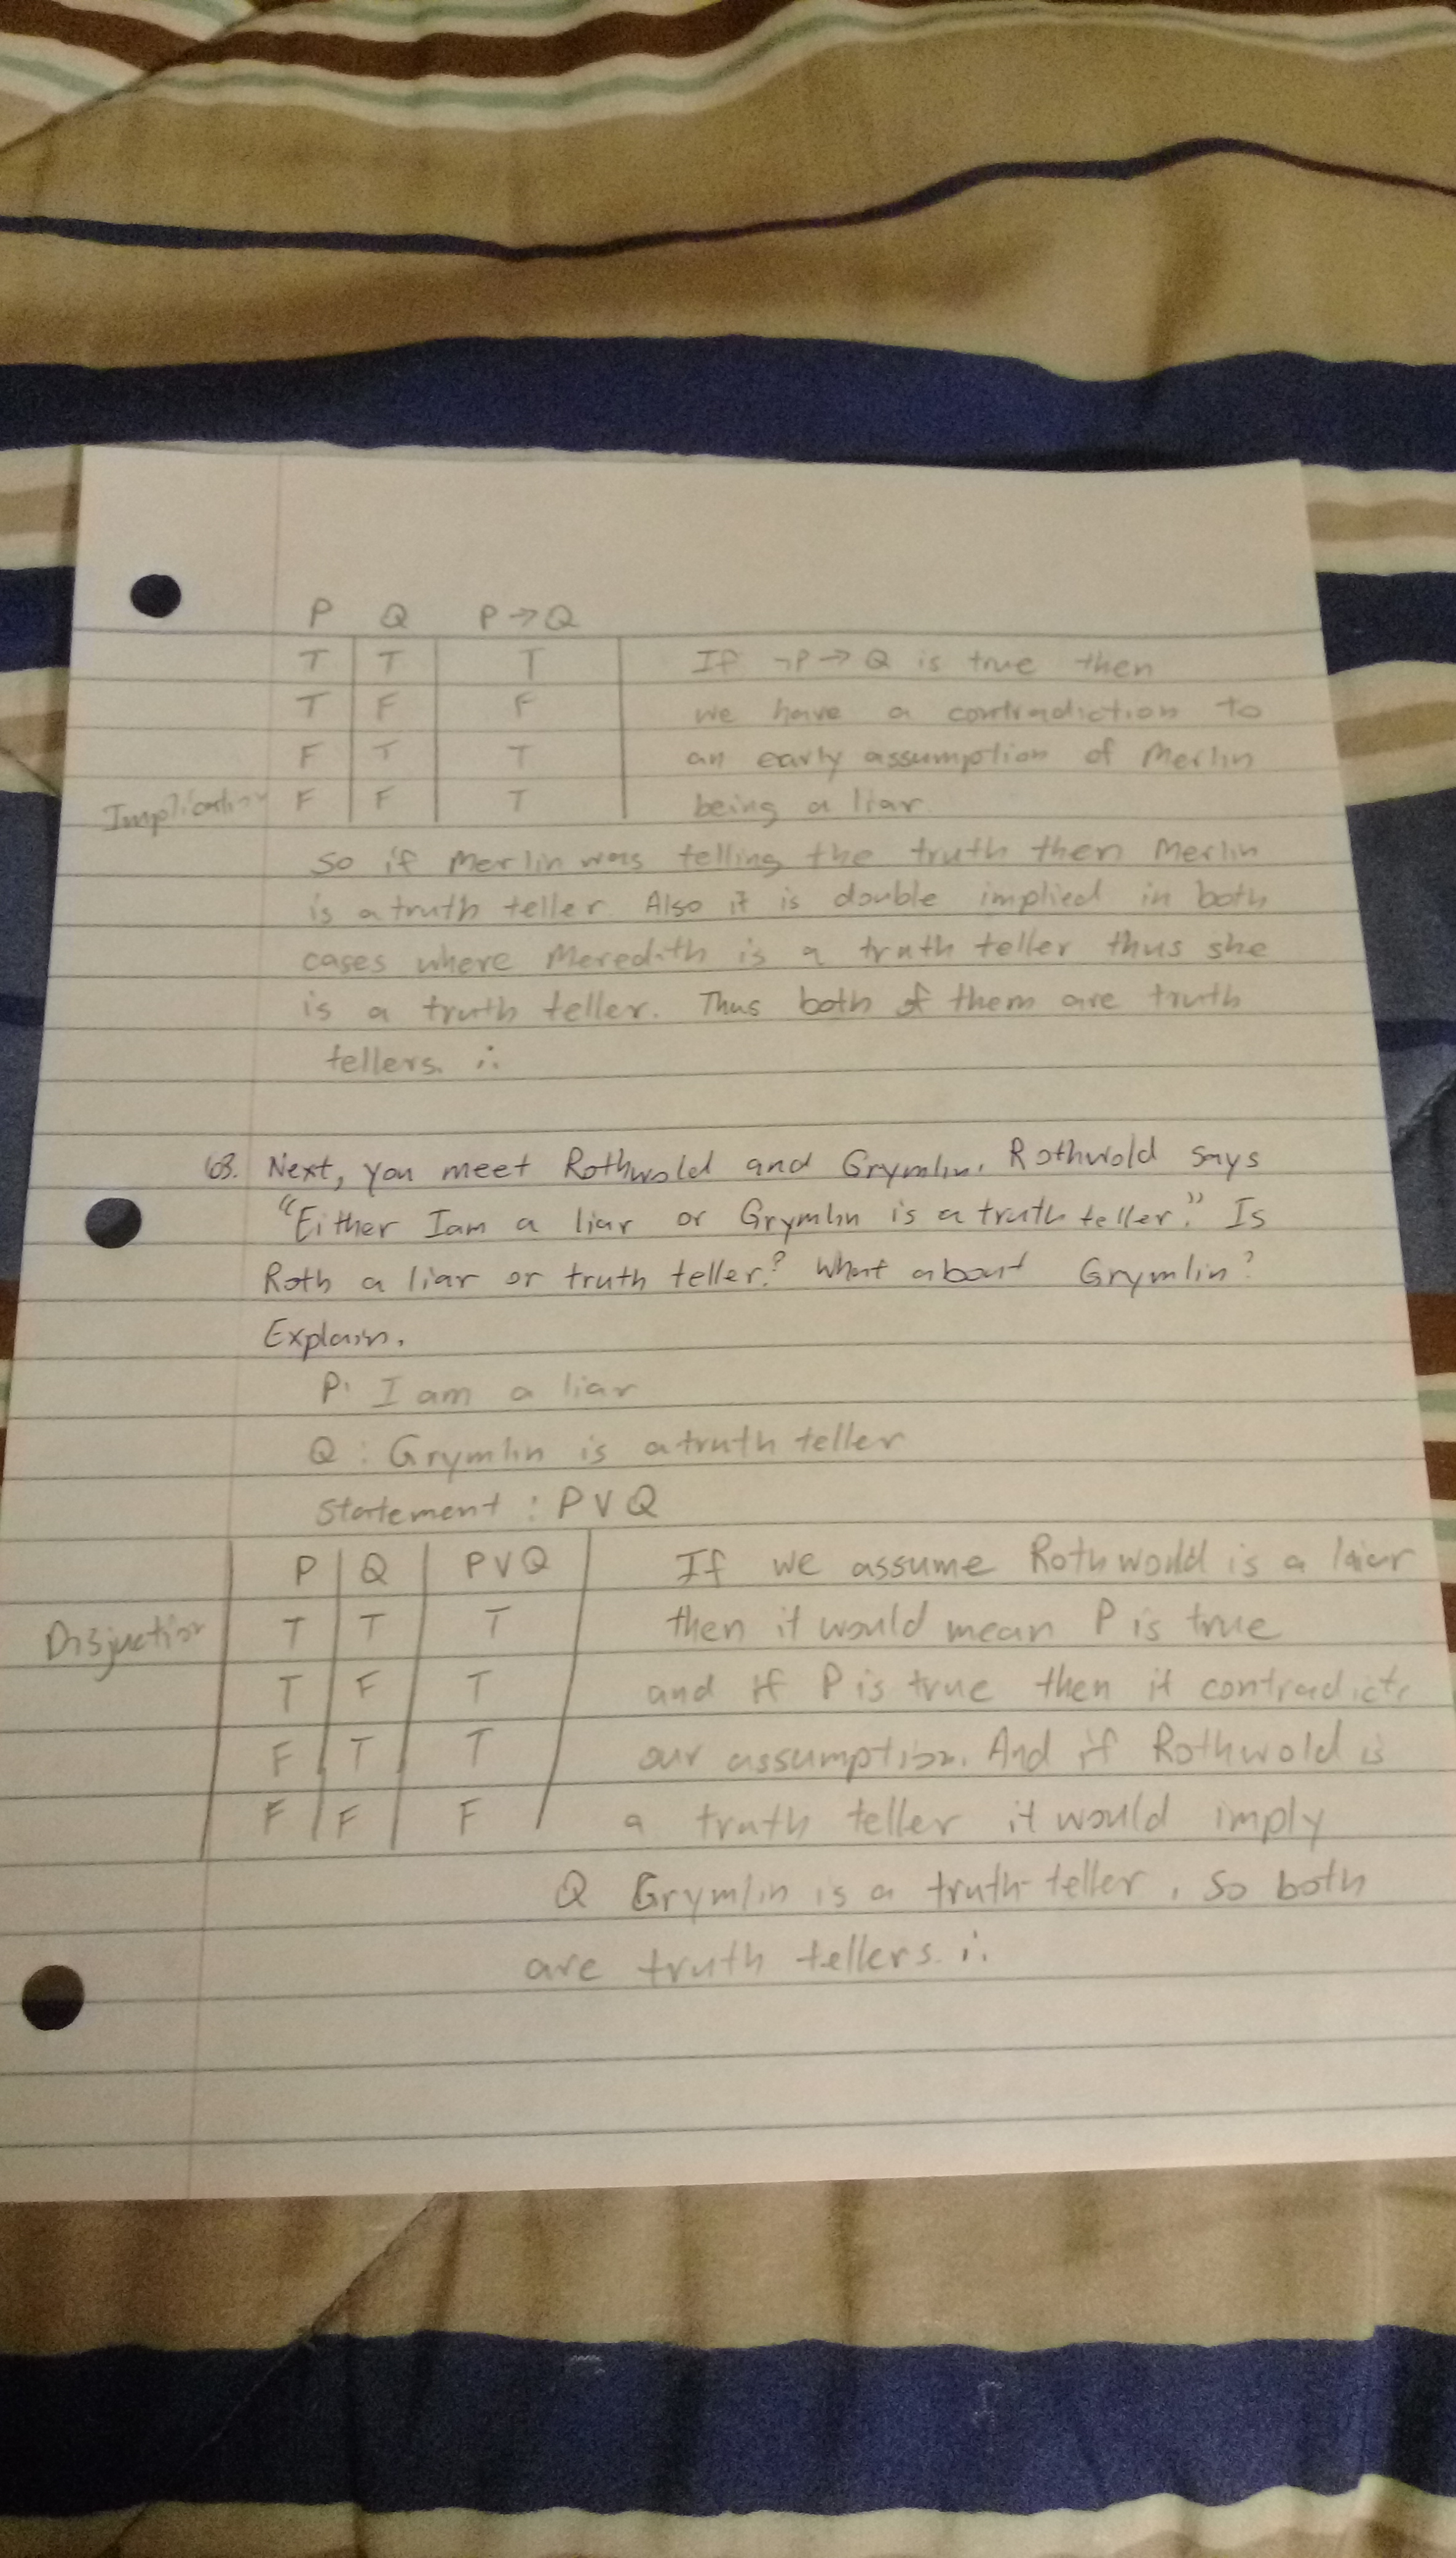 P Q P→Q
T T T If ¬P→Q is true then
T F F we have a contradiction to
F T T an early assumption of Merlin
Implication F F T being a liar.
So if Merlin was telling the truth then Merlin
is a truth teller. Also it is double implied in both
cases where Meredith is a truth teller thus she
is a truth teller. Thus both of them are truth
tellers. ∴
63. Next, you meet Rothwold and Grymlin. Rothwold says
"Either I am a liar or Grymlin is a truth teller." Is
Roth a liar or truth teller? What about Grymlin?
Explain.
P: I am a liar
Q: Grymlin is a truth teller
Statement: P∨Q
P Q P∨Q If we assume Rothwold is a laier
Disjuction T T T then it would mean P is true
T F T and if P is true then it contradicts
F T T our assumption. And if Rothwold is
F F F a truth teller it would imply
Q Grymlin is a truth teller, So both
are truth tellers. ∴